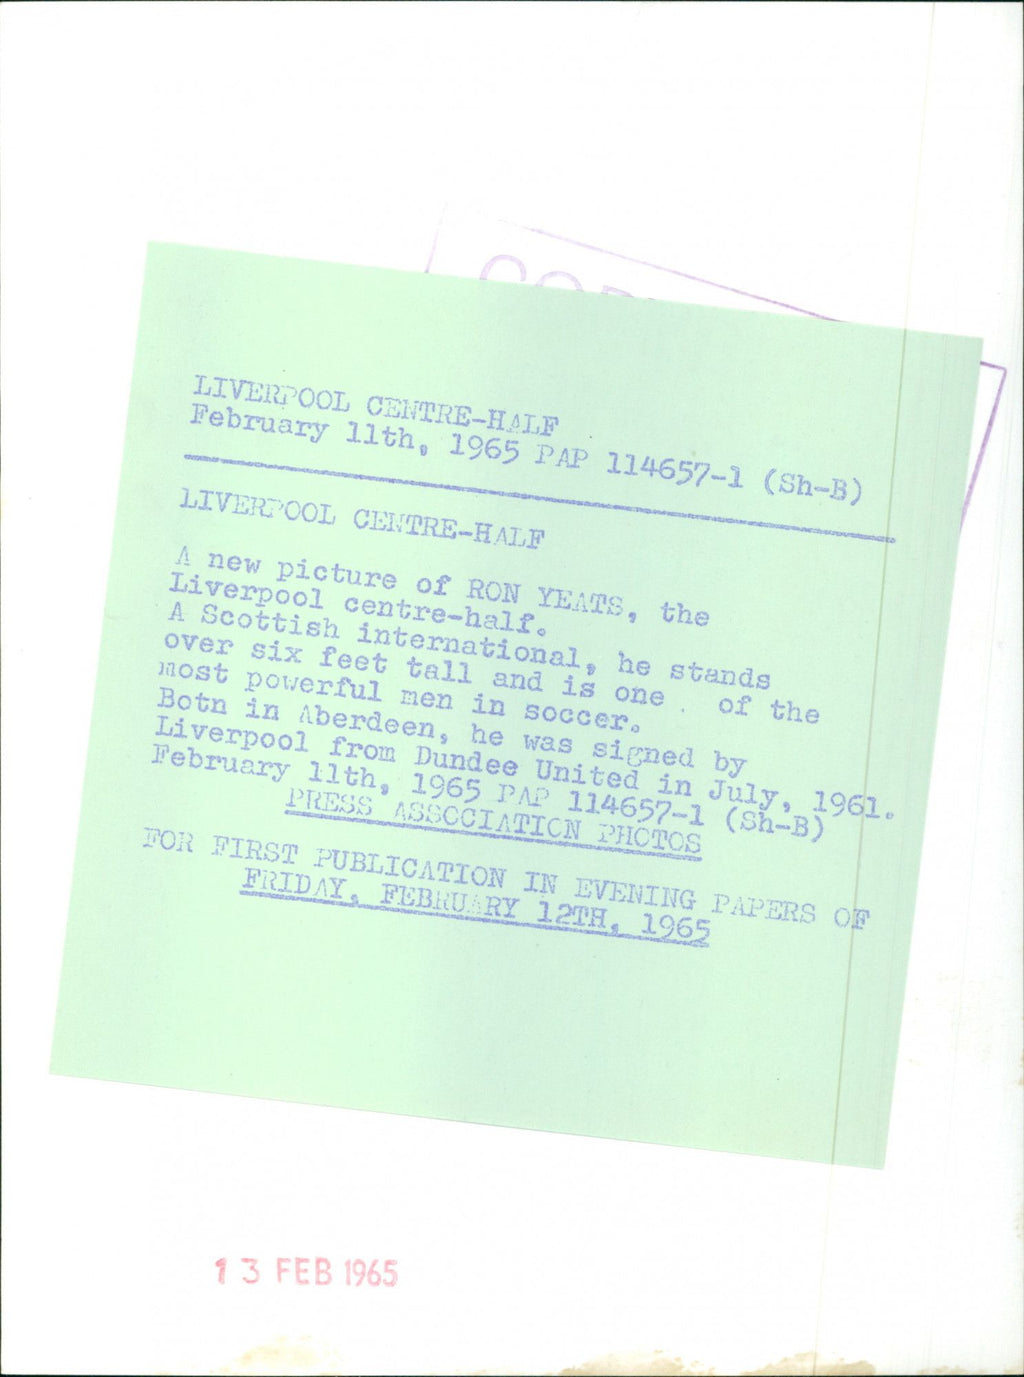 LIVERPOOL CENTRE-HALF
February 11th, 1965 PAP 114657-1 (Sh-B)
LIVERPOOL CENTRE-HALF
A new picture of RON YEATS, the
Liverpool centre-half.
A Scottish international, he stands
over six feet tall and is one . of the
most powerful men in soccer.
Botn in Aberdeen, he was signed by
Liverpool from Dundee United in July, 1961.
February 11th, 1965 PAP 114657-1 (Sh-B)
PRESS ASSOCIATION PHOTOS
FOR FIRST PUBLICATION IN EVENING PAPERS OF
FRIDAY, FEBRUARY 12TH, 1965
13 FEB 1965